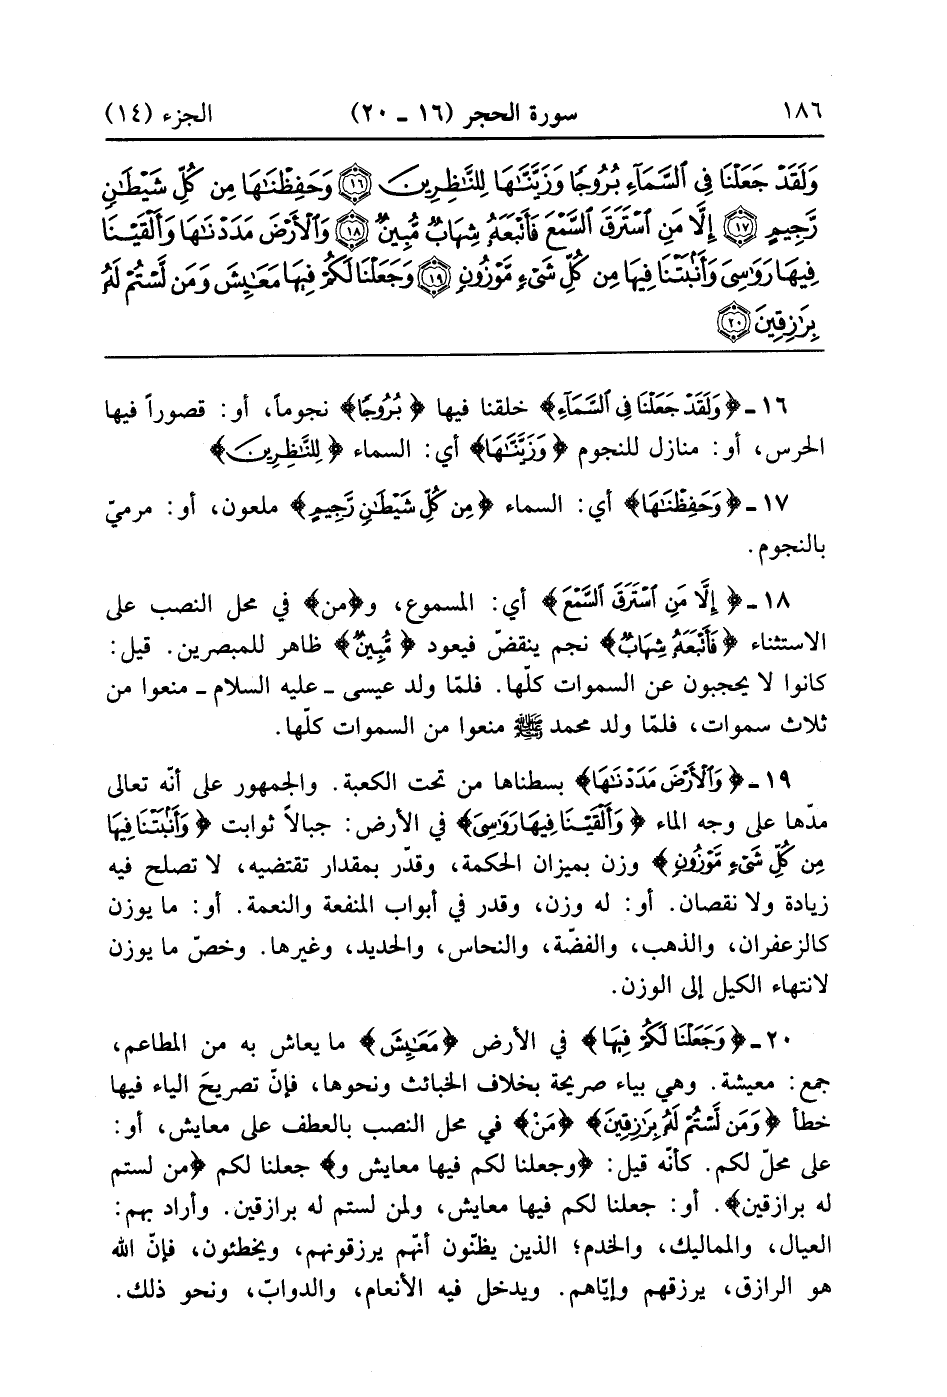 ١٨٦ سورة الحجر (١٦ ـ ٢٠) الجزء (١٤)
وَلَقَدْ جَعَلْنَا فِي ٱلسَّمَآءِ بُرُوجًا وَزَيَّنَّٰهَا لِلنَّٰظِرِينَ ﴿١٦﴾ وَحَفِظْنَٰهَا مِن كُلِّ شَيْطَٰنٍ
رَّجِيمٍ ﴿١٧﴾ إِلَّا مَنِ ٱسْتَرَقَ ٱلسَّمْعَ فَأَتْبَعَهُۥ شِهَابٌ مُّبِينٌ ﴿١٨﴾ وَٱلْأَرْضَ مَدَدْنَٰهَا وَأَلْقَيْنَا
فِيهَا رَوَٰسِيَ وَأَنۢبَتْنَا فِيهَا مِن كُلِّ شَيْءٍ مَّوْزُونٍ ﴿١٩﴾ وَجَعَلْنَا لَكُمْ فِيهَا مَعَٰيِشَ وَمَن لَّسْتُمْ لَهُۥ
بِرَٰزِقِينَ ﴿٢٠﴾
١٦ ـ ﴿وَلَقَدْ جَعَلْنَا فِي ٱلسَّمَآءِ﴾ خلقنا فيها ﴿بُرُوجًا﴾ نجوماً، أو: قصوراً فيها
الحرس، أو: منازل للنجوم ﴿وَزَيَّنَّٰهَا﴾ أي: السماء ﴿لِلنَّٰظِرِينَ﴾
١٧ ـ ﴿وَحَفِظْنَٰهَا﴾ أي: السماء ﴿مِن كُلِّ شَيْطَٰنٍ رَّجِيمٍ﴾ ملعون، أو: مرميّ
بالنجوم.
١٨ ـ ﴿إِلَّا مَنِ ٱسْتَرَقَ ٱلسَّمْعَ﴾ أي: المسموع، و﴿من﴾ في محل النصب على
الاستثناء ﴿فَأَتْبَعَهُۥ شِهَابٌ﴾ نجم ينقضّ فيعود ﴿مُّبِينٌ﴾ ظاهر للمبصرين. قيل:
كانوا لا يحجبون عن السموات كلّها. فلمّا ولد عيسى ـ عليه السلام ـ منعوا من
ثلاث سموات، فلمّا ولد محمد ﷺ منعوا من السموات كلّها.
١٩ ـ ﴿وَٱلْأَرْضَ مَدَدْنَٰهَا﴾ بسطناها من تحت الكعبة. والجمهور على أنّه تعالى
مدّها على وجه الماء ﴿وَأَلْقَيْنَا فِيهَا رَوَٰسِيَ﴾ في الأرض: جبالاً ثوابت ﴿وَأَنۢبَتْنَا فِيهَا
مِن كُلِّ شَيْءٍ مَّوْزُونٍ﴾ وزن بميزان الحكمة، وقدّر بمقدار تقتضيه، لا تصلح فيه
زيادة ولا نقصان. أو: له وزن، وقدر في أبواب المنفعة والنعمة. أو: ما يوزن
كالزعفران، والذهب، والفضّة، والنحاس، والحديد، وغيرها. وخصّ ما يوزن
لانتهاء الكيل إلى الوزن.
٢٠ ـ ﴿وَجَعَلْنَا لَكُمْ فِيهَا﴾ في الأرض ﴿مَعَٰيِشَ﴾ ما يعاش به من المطاعم،
جمع: معيشة. وهي بياء صريحة بخلاف الخبائث ونحوها، فإنّ تصريحَ الياء فيها
خطأ ﴿وَمَن لَّسْتُمْ لَهُۥ بِرَٰزِقِينَ﴾ ﴿مَنْ﴾ في محل النصب بالعطف على معايش، أو:
على محلّ لكم. كأنّه قيل: ﴿وجعلنا لكم فيها معايش و﴾ جعلنا لكم ﴿من لستم
له برازقين﴾. أو: جعلنا لكم فيها معايش، ولمن لستم له برازقين. وأراد بهم:
العيال، والمماليك، والخدم؛ الذين يظنّون أنّهم يرزقونهم، ويخطئون، فإنّ الله
هو الرازق، يرزقهم وإيّاهم. ويدخل فيه الأنعام، والدوابّ، ونحو ذلك.